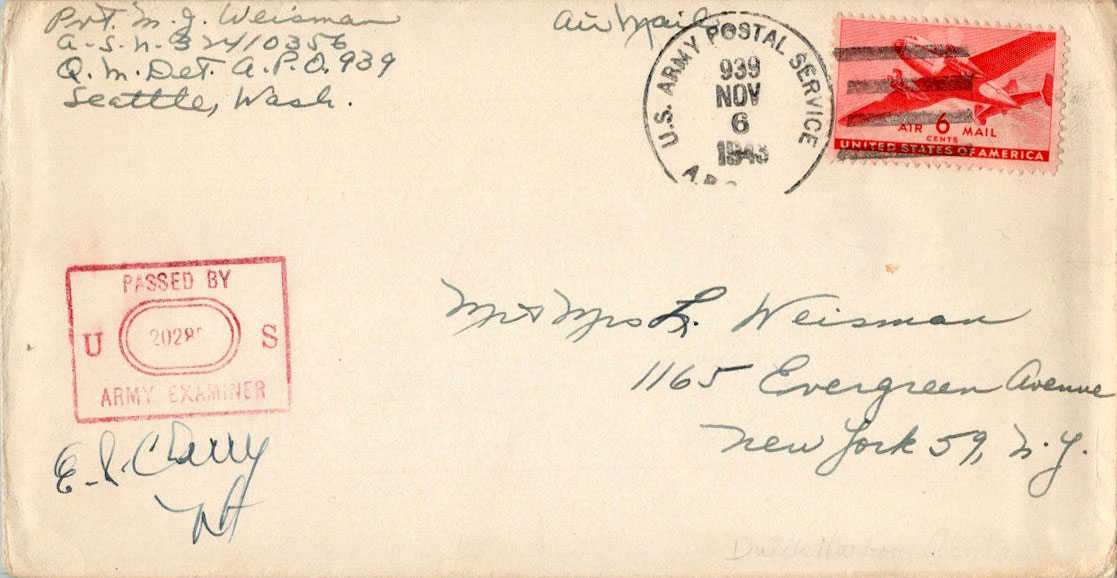 Pvt. M. J. Weisman
A-S-N-32410356
Q. M. Det. A.P.O. 939
Seattle, Wash.
Air Mail
U.S. ARMY POSTAL SERVICE
939
NOV
6
1943
AIR 6 MAIL
CENTS
UNITED STATES OF AMERICA
PASSED BY
U S
ARMY EXAMINER
Mr & Mrs L. Weisman
1165 Evergreen Avenue
New York 59, N.Y.
Dutch Harbor